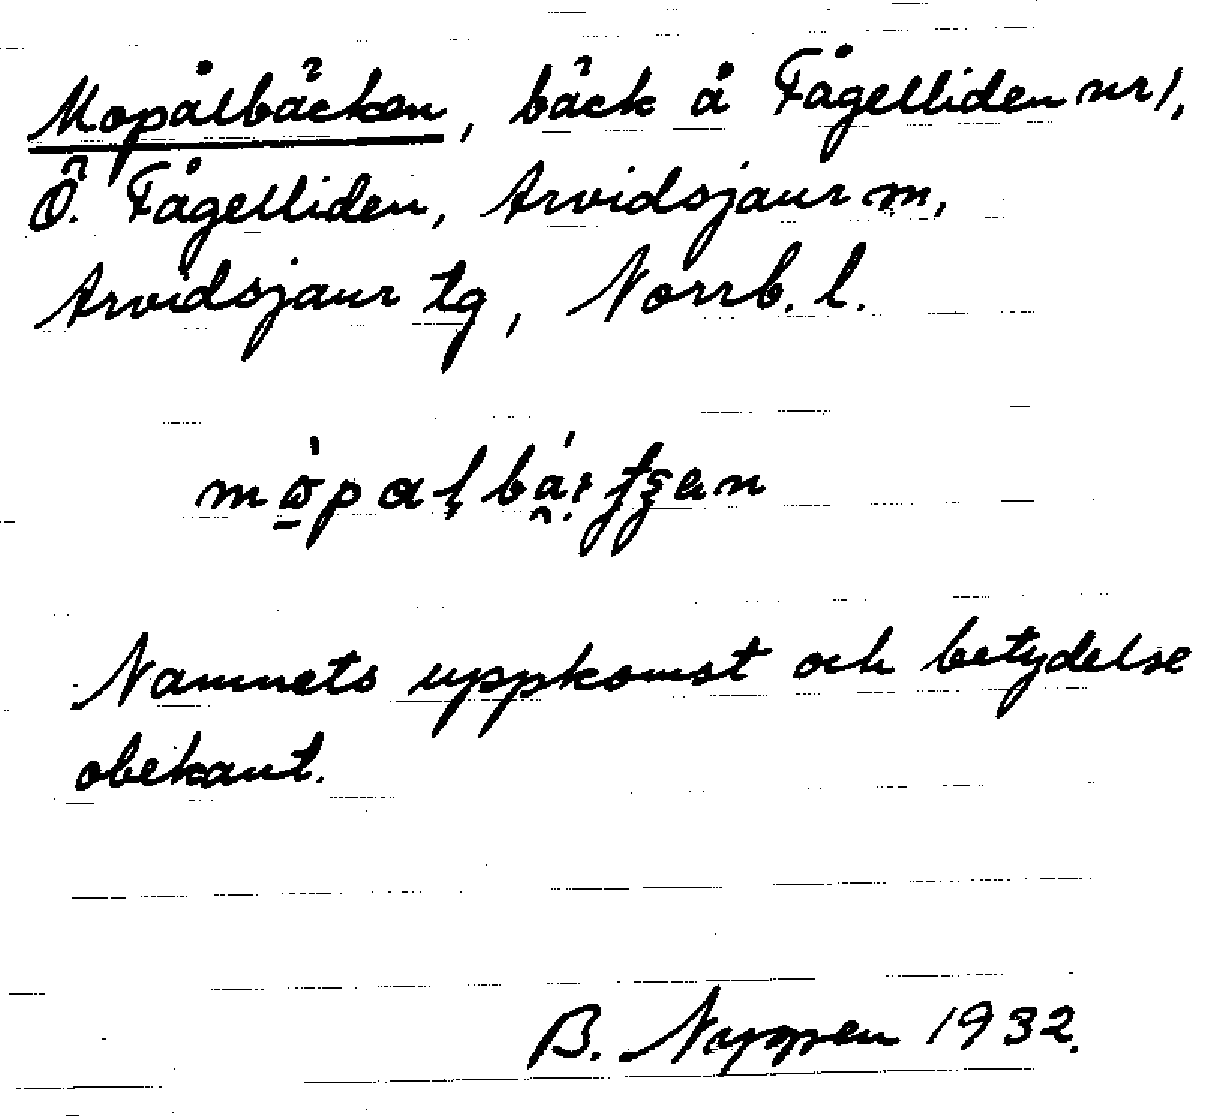 Mopålbäcken, bäck å Fågelliden nr 1,
Ö. Fågelliden, Arvidsjaur sn,
Arvidsjaur tg, Norrb. l.
Namnets uppkomst och betydelse
obekant.
B. 1932.